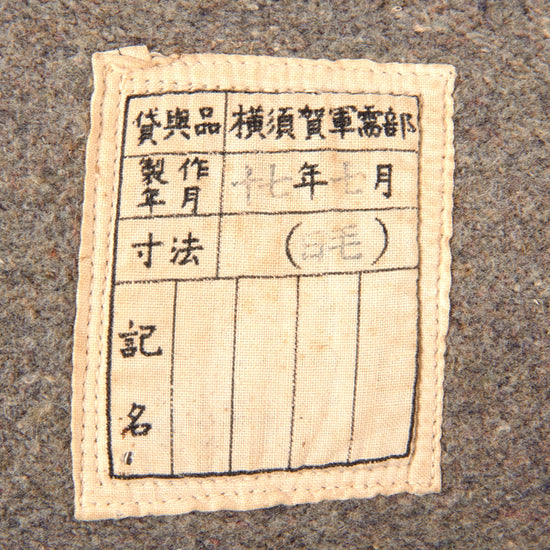 貸與品 横須賀軍需部
製作年月 十七年七月
寸法 (日毛)
記名